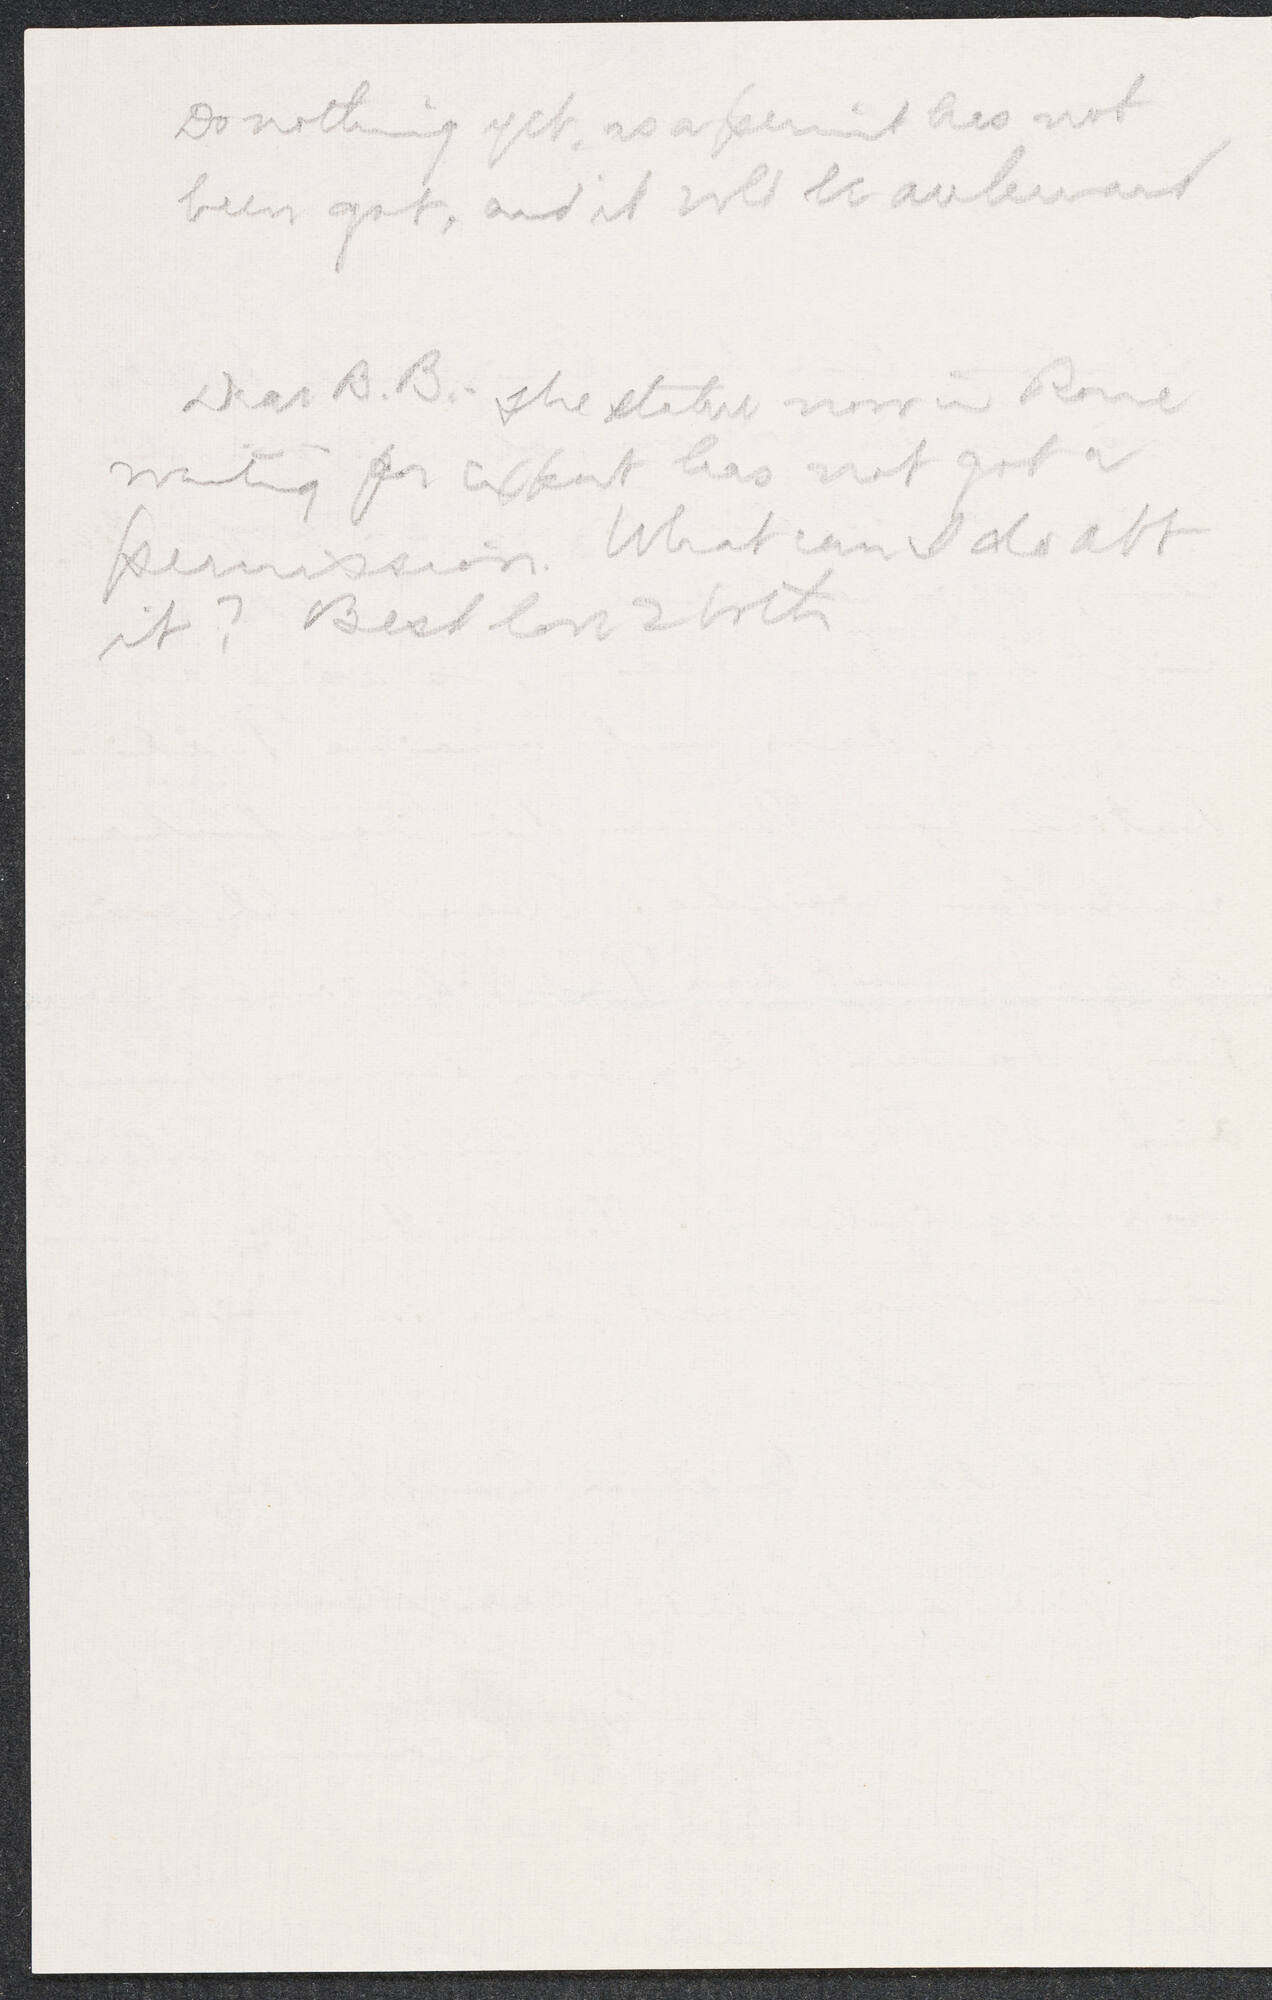 Do nothing yet, as a permit has not
been got, and it wld be awkward
Dear B.B.- The statue now in Rome
waiting for export has not got a
permission. What can I do abt
it? Best love 2 both